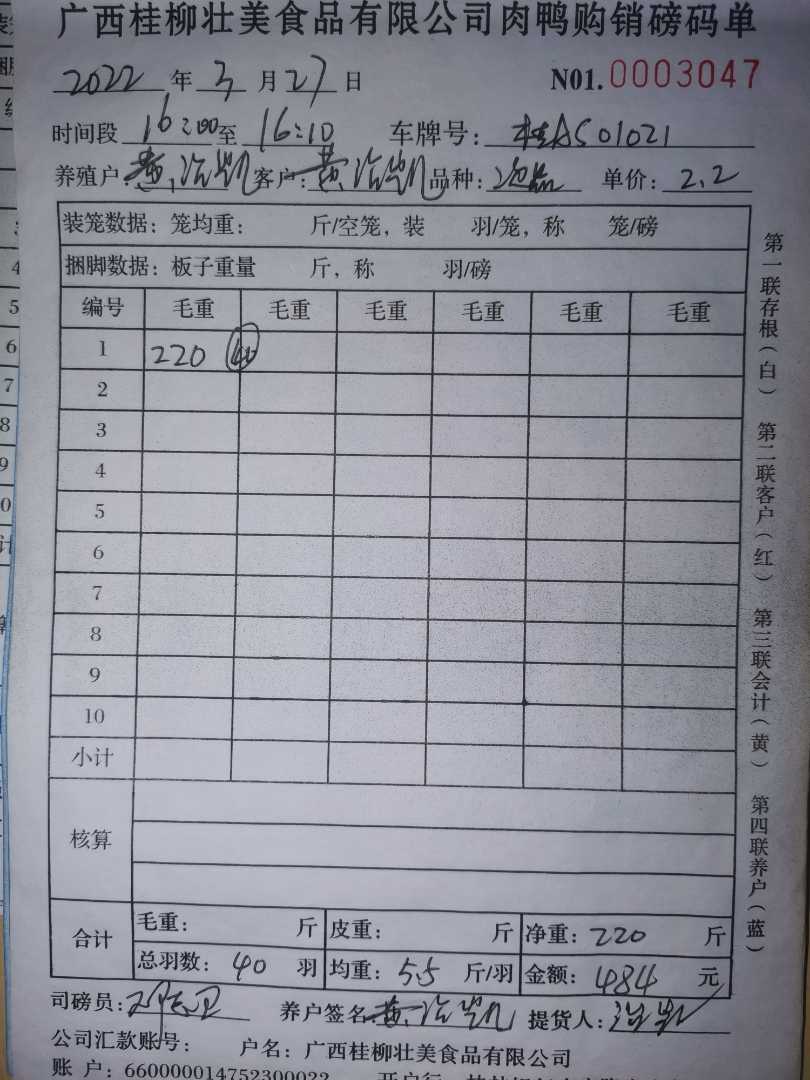 广西桂柳壮美食品有限公司肉鸭购销磅码单
2022 年 3 月 27 日 N01. 0003047
时间段 16:00 至 16:10 车牌号: 桂AS01021
养殖户: 黄冶凯 客户: 黄冶凯 品种: 次品 单价: 2.2
装笼数据: 笼均重: 斤/空笼, 装 羽/笼, 称 笼/磅
捆脚数据: 板子重量 斤, 称 羽/磅
编号 毛重 毛重 毛重 毛重 毛重 毛重
1 220 40
2
3
4
5
6
7
8
9
10
小计
核算
合计 毛重: 斤 皮重: 斤 净重: 220 斤
总羽数: 40 羽 均重: 5.5 斤/羽 金额: 484 元
司磅员: 养户签名: 黄冶凯 提货人: 冶凯
公司汇款账号: 户名: 广西桂柳壮美食品有限公司
账 户: 660000014752300022 开户行
第一联存根(白) 第二联客户(红) 第三联会计(黄) 第四联养户(蓝)